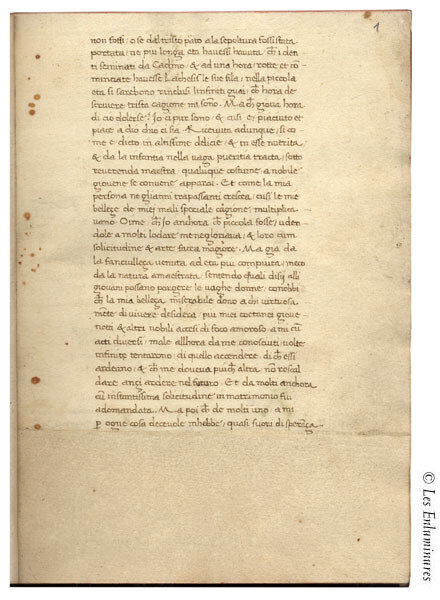 1
non fossi / o se dal tristo pato a la sepoltura fossi stata
portata / ne piu longa eta havessi havuta ch i den
ti seminati da Cadmo / & ad una hora / rotte et cō
minciate havesse Lachesis le sue fila / nella piccola
eta si sarebono rinclusi linfiniti guai / ch hora de
scrivere trista cagione mi sono. Ma ch giova hora
di cio dolersi? Io ci pur sono / & cusi e piaciuto et
piace a dio ch io ci sia. Ricevuta adunque / si co
me e dicto in altissime delicie / & in esse nutrita
& da la infantia nella vaga pueritia tracta / sotto
reverenda maestra qualunque costume a nobile
giovene se convene apparai. Et come la mia
persona ne gli anni trapassanti cresceа / cusi le me
bellege de miei mali speciale cagione multiplica
vano Oime ch io anchora ch piccola fosse / uden
dole a molti lodare me ne gloriava / & loro cum
solicitudine & arte facea magiore. Ma gia da
la fanciullega venuta ad eta piu compiuta / meco
da la natura amaestrata sentendo quali disii a li
giovani possano porgere le vaghe donne conobbi
ch la mia bellega miserabile dono a chi virtuosa
mēte di vivere desidera / piu miei coetanei giove
netti & altri nobili accesi di foco amoroso / a mi cū
acti diversi male allhora da me conosciuti / volte
infinite tentarono / di quello accendere / di ch essi
ardeano / & ch me dovevia piu ch altra non rescal
dare anzi ardere nel futuro. Et da molti anchora
cū instantissima solicitudine in matrimonio fui
adomandata. Ma poi ch de molti uno a mi
p ogne cosa decevole mhebbe / quasi fuori di sperāça
© Les Enluminures